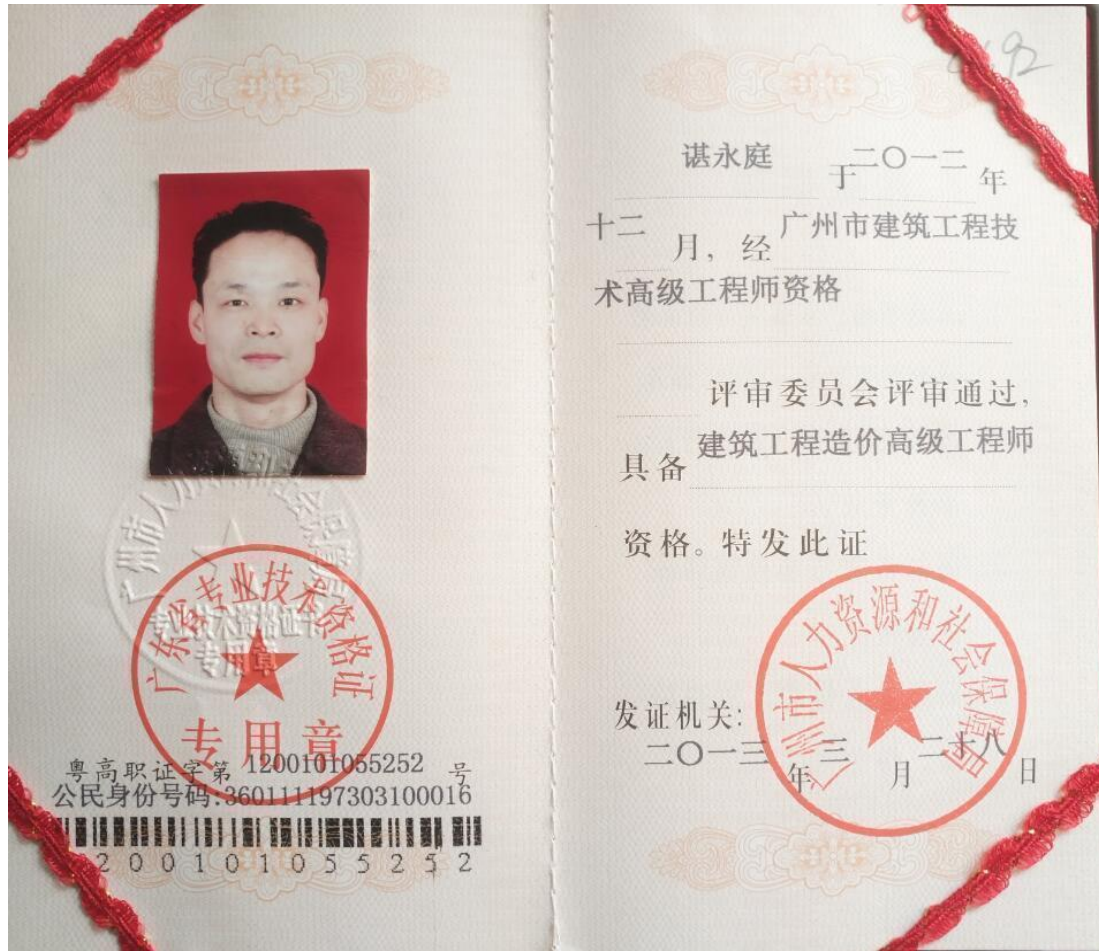 广州市人力资源和社会保障局
专业技术资格证书
专用章
广东省专业技术资格证
专用章
粤高职证字第 1200101055252 号
公民身份号码:360111197303100016
200101055252
谌永庭 于二〇一二年
十二月，经广州市建筑工程技
术高级工程师资格
评审委员会评审通过,
具备建筑工程造价高级工程师
资格。特发此证
广州市人力资源和社会保障局
发证机关:
二〇一三年三月二十八日